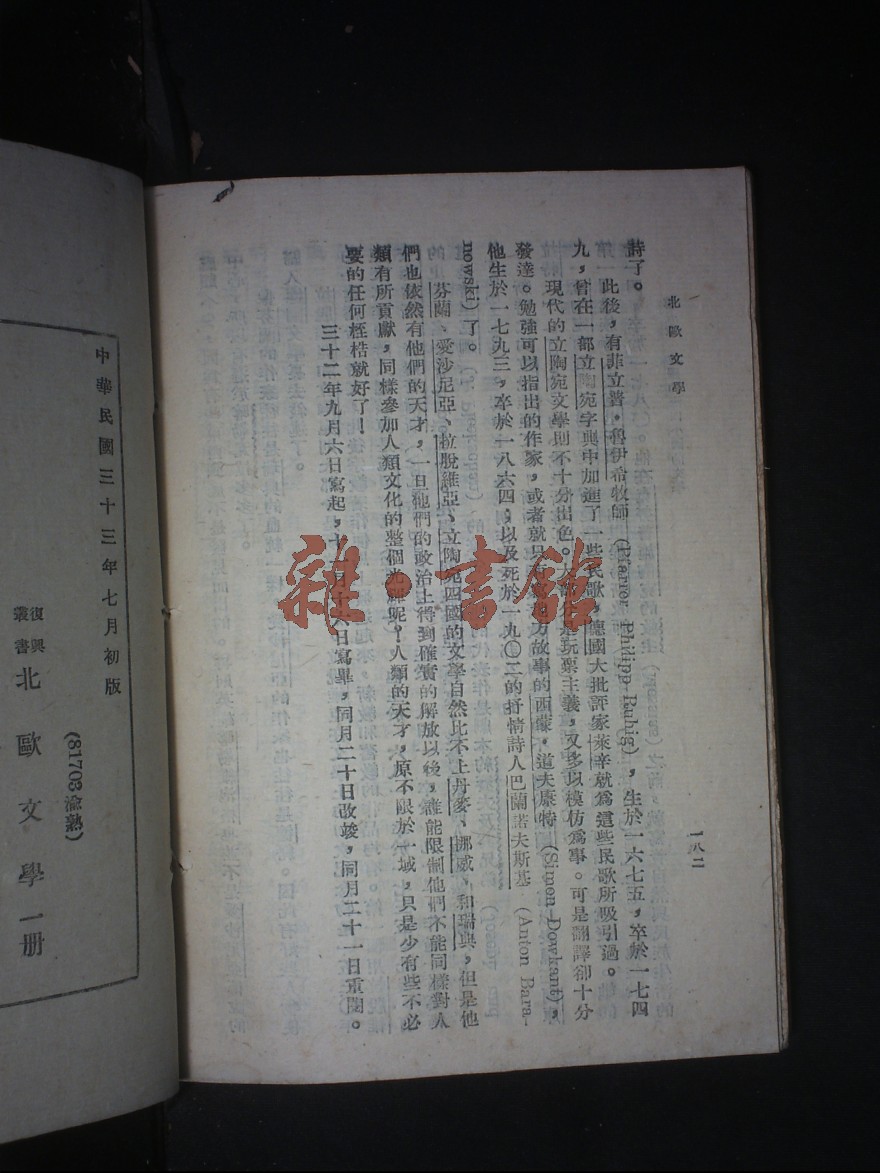 北歐文學
一八二
詩了。
此後，有菲立普·魯伊希牧師 (Pfarror Philipp Ruhig)，生於一六七五，卒於一七四
九，曾在一部立陶宛字典中加進了一些民歌，德國大批評家萊辛就爲這些民歌所吸引過。
現代的立陶宛文學則不十分出色。大都仍是玩票主義，又多以模仿爲事。可是翻譯卻十分
發達。勉強可以指出的作家，或者就只有寫地方故事的西蒙·道夫康特 (Simon Dowkant)，
他生於一七九三，卒於一八六四，以及死於一九〇二的抒情詩人巴蘭諾夫斯基 (Anton Bara-
nowski) 了。
芬蘭、愛沙尼亞、拉脫維亞、立陶宛四國的文學自然比不上丹麥、挪威、和瑞典，但是他
們也依然有他們的天才，一旦他們的政治上得到確實的解放以後，誰能限制他們不能同樣對人
類有所貢獻，同樣參加人類文化的整個光輝呢？人類的天才，原不限於一域，只是少有些不必
要的任何桎梏就好了！
三十二年九月六日寫起，十一月十六日寫畢，同月二十日改竣，同月二十一日重閱。
雜·書館
中華民國三十三年七月初版
(81703渝熟)
復興叢書
北歐文學一册